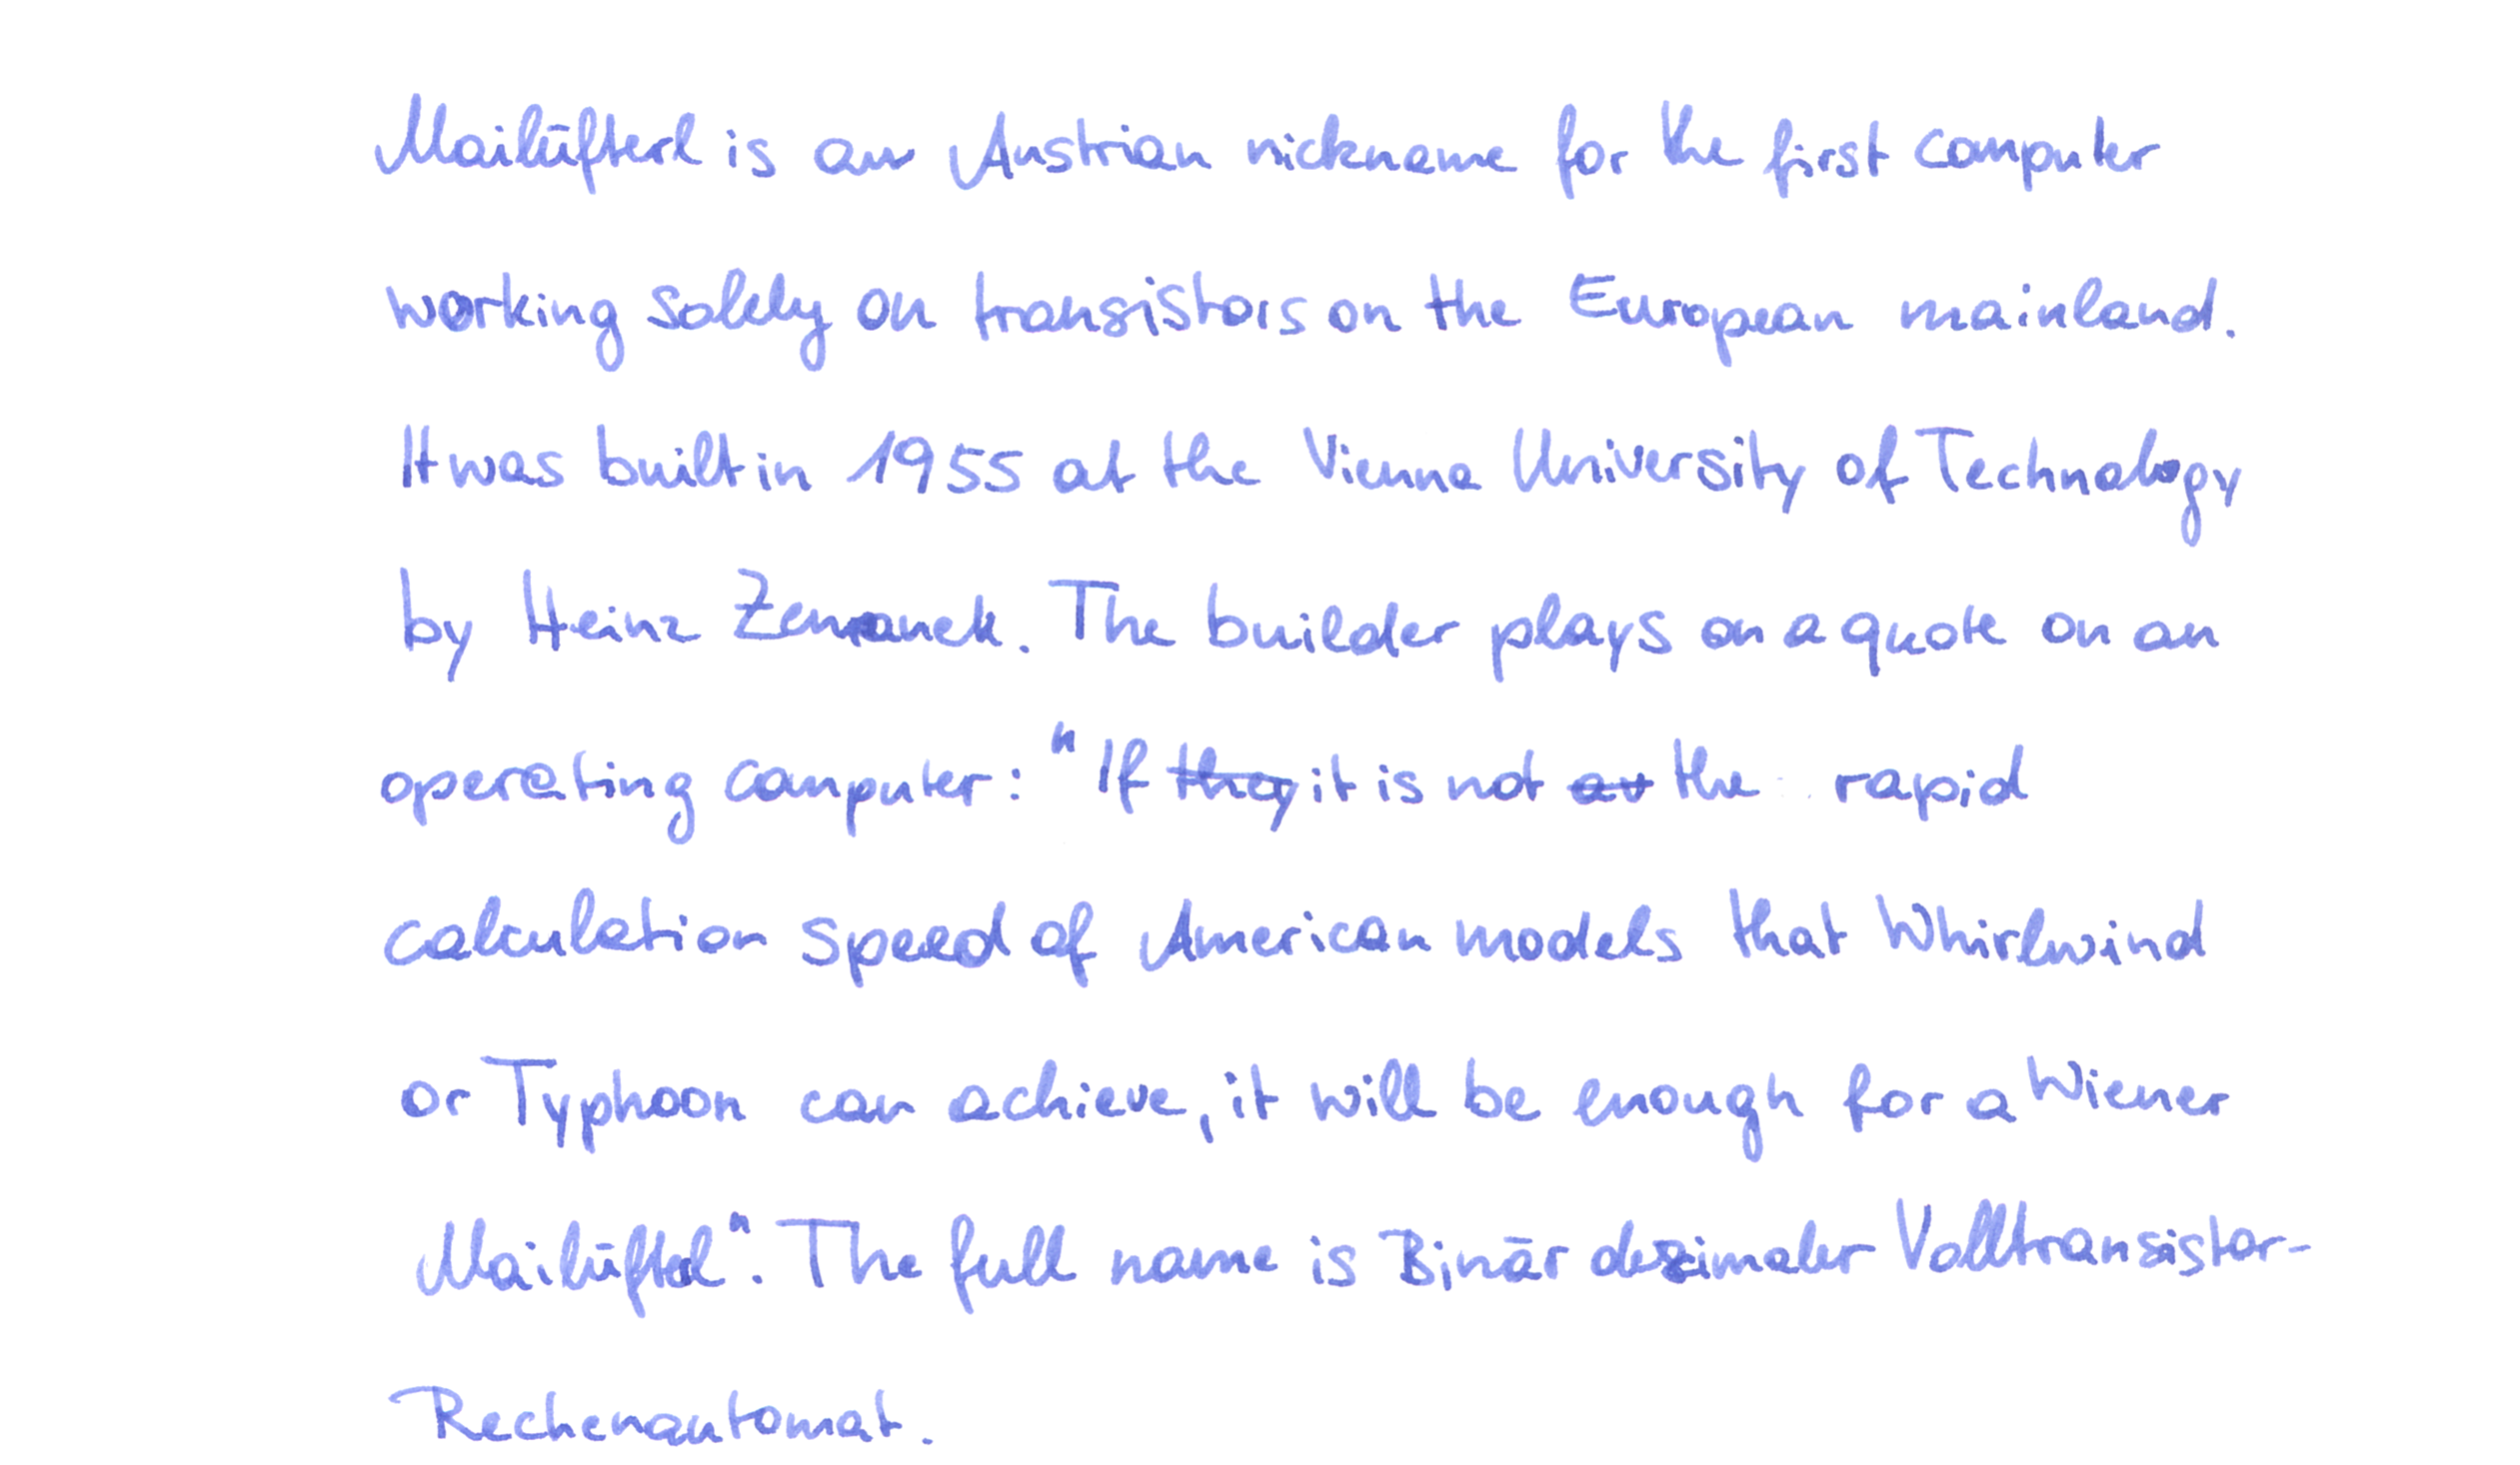 Mailüfterl is an Austrian nickname for the first computer
working solely on transistors on the European mainland.
It was built in 1955 at the Vienna University of Technology
by Heinz Zemanek. The builder plays on a quote on an
operating computer: "If they it is not at the rapid
calculation speed of American models that Whirlwind
or Typhoon can achieve, it will be enough for a Wiener
Mailüfterl". The full name is Binär dezimaler Volltransistor-
Rechenautomat.